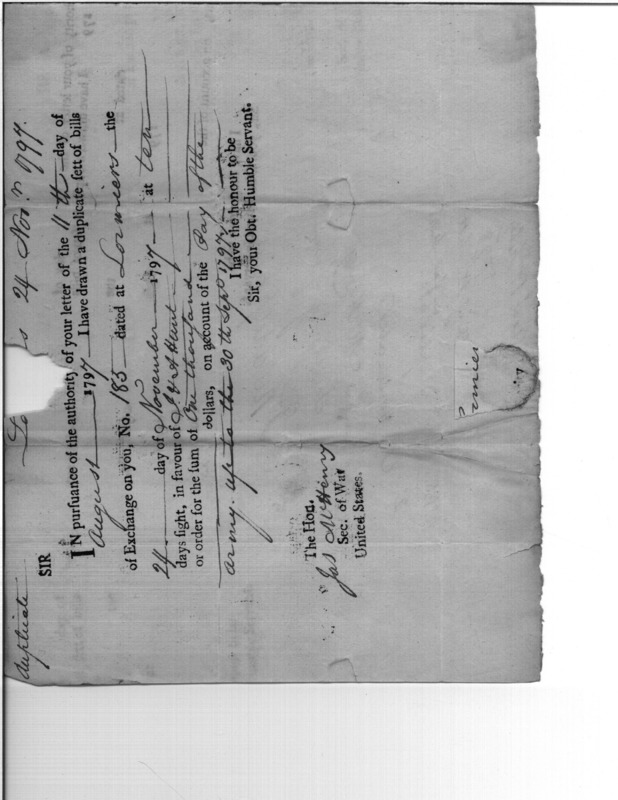 Duplicate Lo s 24 Nov.r 1797.
SIR
IN pursuance of the authority of your letter of the 11th day of
August 1797 I have drawn a duplicate sett of bills
of Exchange on you, No. 185 dated at Lormiers the
24 day of November 1797 at ten
days sight, in favour of J. & A Hunt
or order for the sum of One thousand
dollars, on account of the Pay of the
army. up to the 30th Sepr 1797
I have the honour to be
Sir, your Obt. Humble Servant.
The Hon.
Jas McHenry
Sec. of War
United States.
rmies